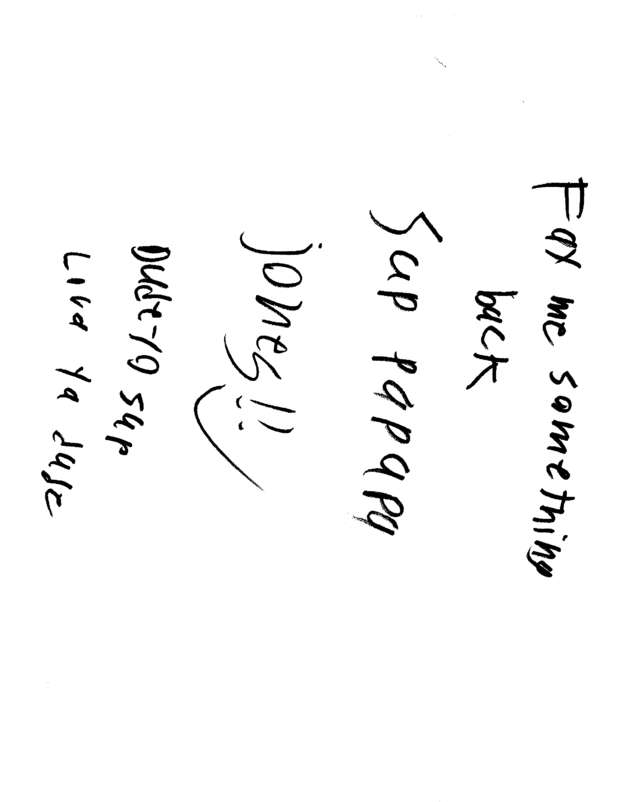 Fax me something
back
Sup papapa
jones!! :)
Dude-10 sup
Luva ya dude